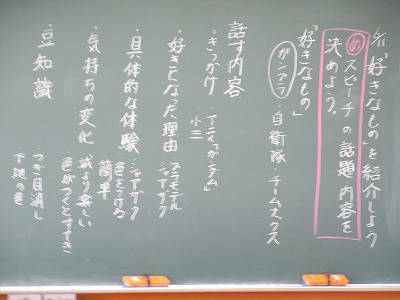 「好きなもの」を紹介しよう
め スピーチの話題・内容を
決めよう。
「好きなもの」
ガンプラ ・自衛隊・チームナックス
話す内容
・きっかけ アニメ「ガンダム」
小三
・好きになった理由 プラモデル
ジャイアザク
・具体的な体験
色をつける
簡単
・気持ちの変化 前より楽しい
色がつくとすてき
・豆知識 つぎ目消し
下地の色